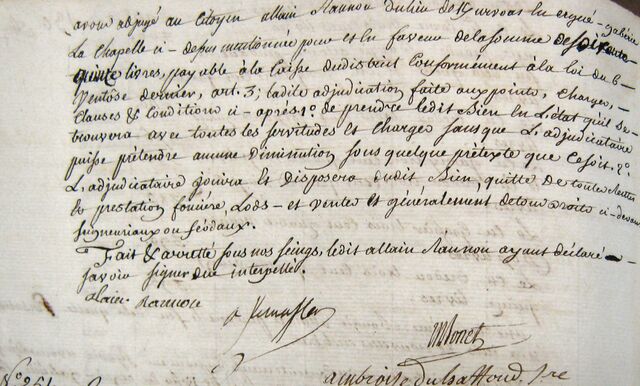 avons adjugé au Citoyen allain Naunou du lieu de Kervoas En ergué-gabéric
La Chapelle ci-depus mentionnée pour et En faveur de la somme de soixante
quinze Livres, payable à la caisse du district Conformément à la loi du 6
Ventôse dernier, art. 3; ladite adjudication faite aux points, Charges,
Clauses & Conditions ci-après 1.° de prendre ledit Bien En L'état qu'il se
trouvera avec toutes les servitudes et Charges sans que L'adjudicataire
puisse prétendre aucune Diminution sous quelque prétexte que ce soit. 2.°
L'adjudicataire Jouira Et Disposera dudit Bien, quitte de toute Rentes
& prestation foncière, Lods et ventes et généralement de tous droits ci-devant
seigneuriaux ou féodaux.
Fait & arrêté sous nos seings, ledit allain Naunou ayant déclaré
savoir signer due interpellé.
Alain nannou
Monet
ambroise
N° 251